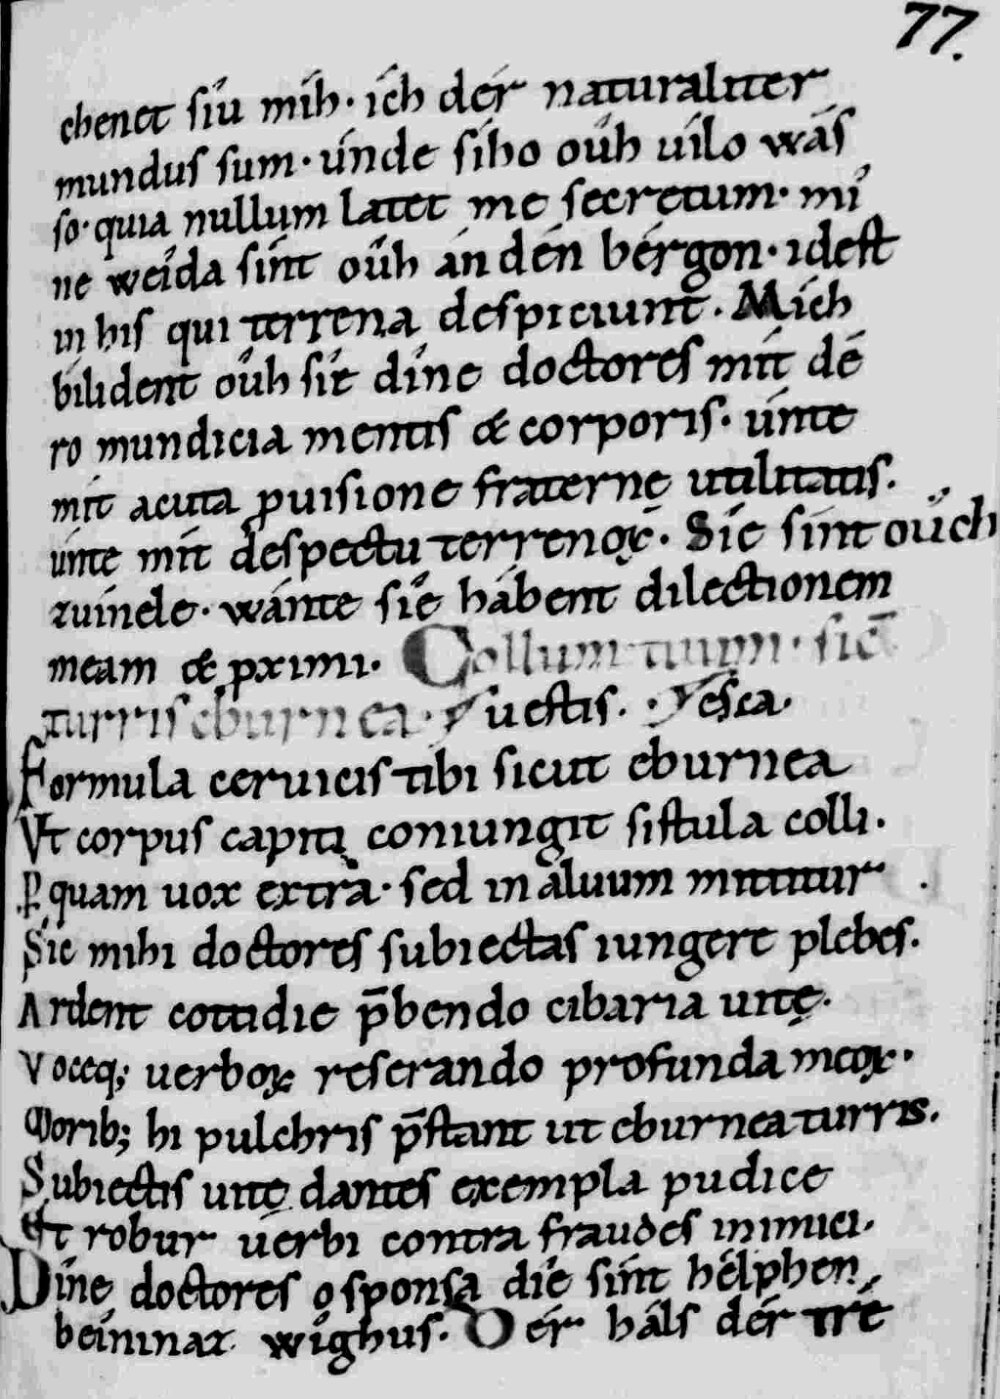 77.
chenet síu míh· ích dér naturaliter
mundus sum· únde sího oûh uílo wás
so· quia nullum latet me secretum· mí
ne weída sínt oûh án dén bérgon· idest
in his qui terrena despiciunt. Mích
bílident oûh síe díne doctores mít dé
ro mundicia mentis & corporis· únte
mít acuta ꝓuisione fraternę utilitatis.
únte mít despectu terrenoꝝ· Síe sínt oûch
zuínele· wánte síe hábent dilectionem
meam & pximi· Collum tuum· sic̄
turris eburnea· uestis. esca·
Formula ceruicis tibi sicut eburnea
Vt corpus capiti coniungit fistula colli.
P quam uox extra· sed in aluum mittitur
Sic mihi doctores subiectas iungere plebes.
Ardent cottidie p̄bendo cibaria uitę.
Voceq; uerboꝝ reserando profunda meoꝝ.
Morib; hi pulchris p̄stant ut eburnea turris.
Subiectis uitę dantes exempla pudice
Et robur uerbi contra fraudes inimici.
Díne doctores o sponsa díe sínt hélphen
beíninaz wíghus. Dér háls dér tré